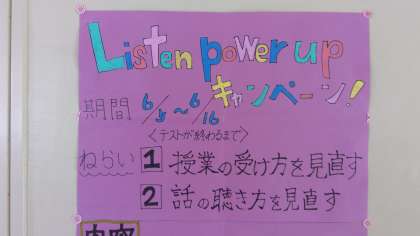 Listen power up
キャンペーン!
期間 6/5〜6/16
<テストが終わるまで>
ねらい 1 授業の受け方を見直す
2 話の聴き方を見直す